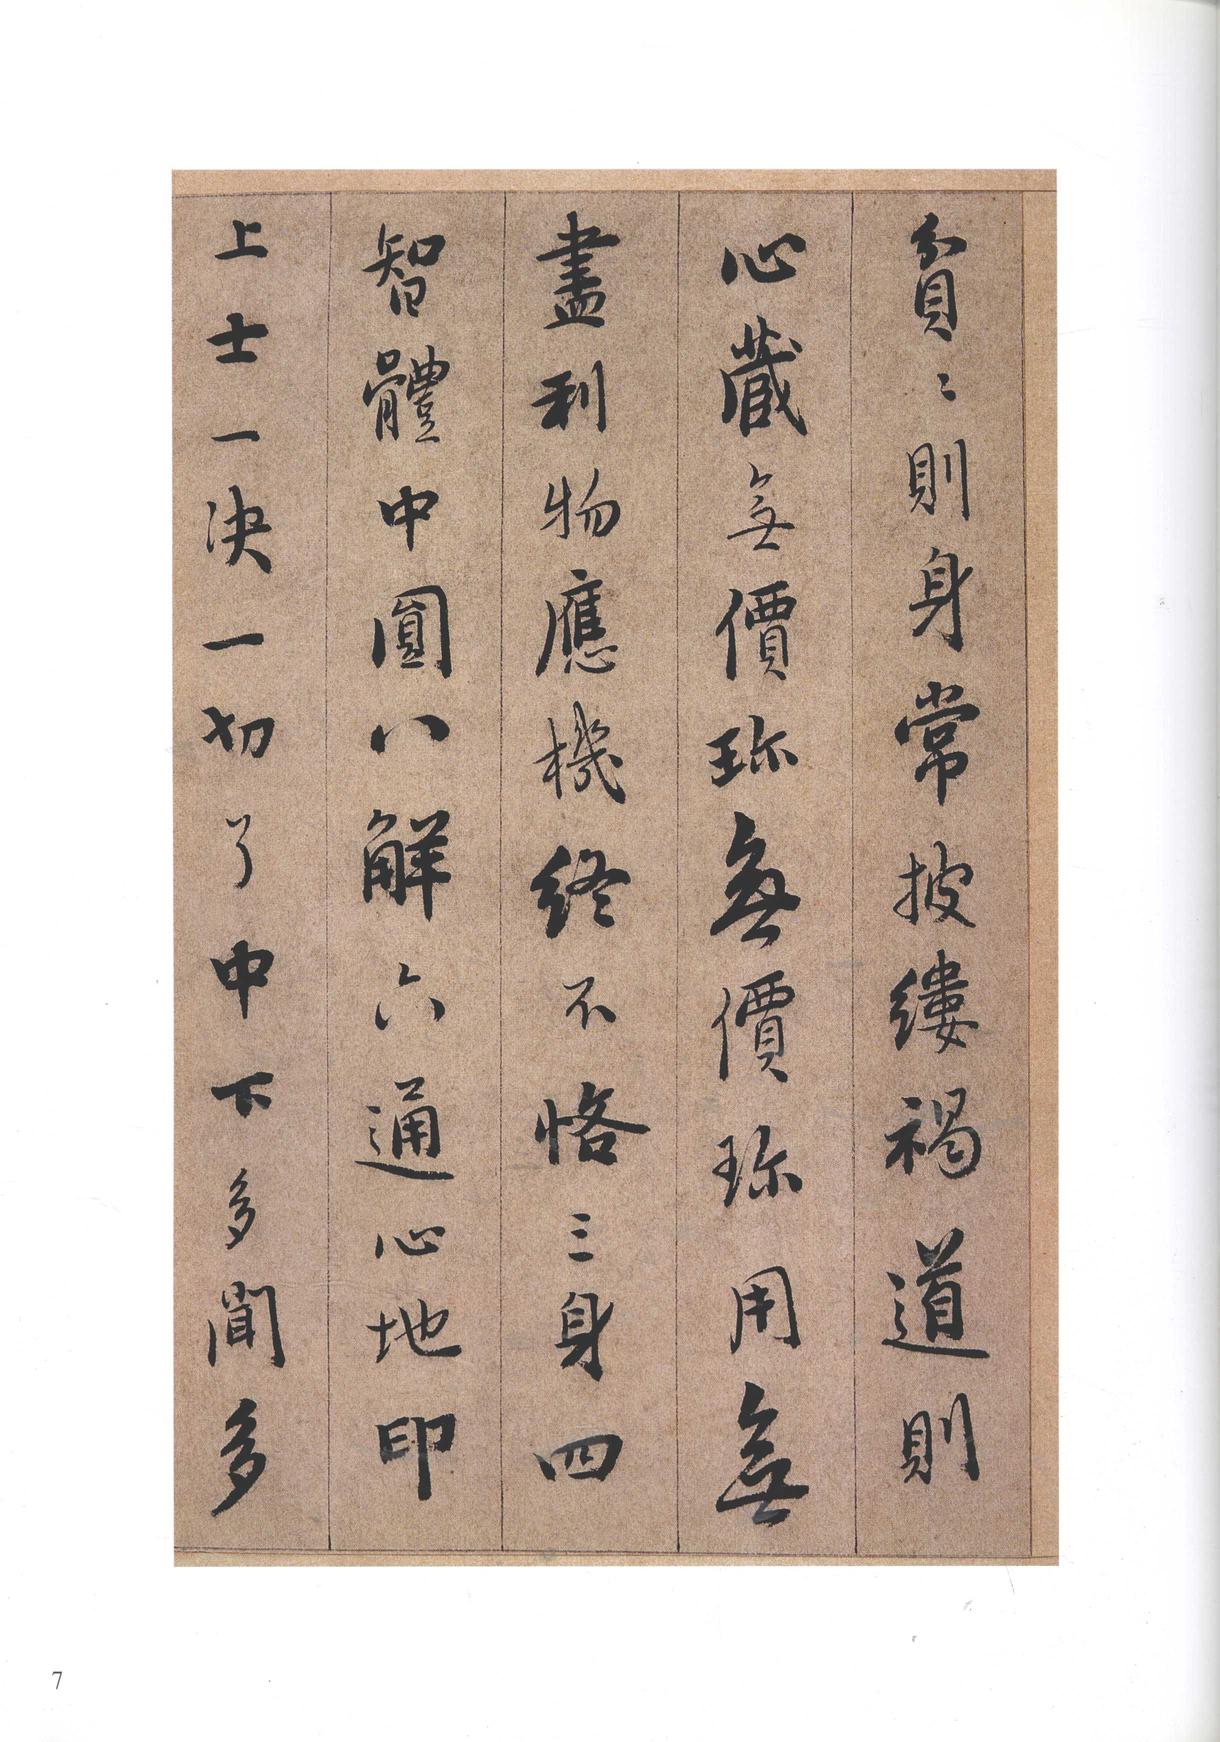 貧〻則身常披縷褐道則
心藏無價珎無價珎用無
盡利物應機終不恡三身四
智體中圓八解六通心地印
上士一決一切了中下多聞多
7